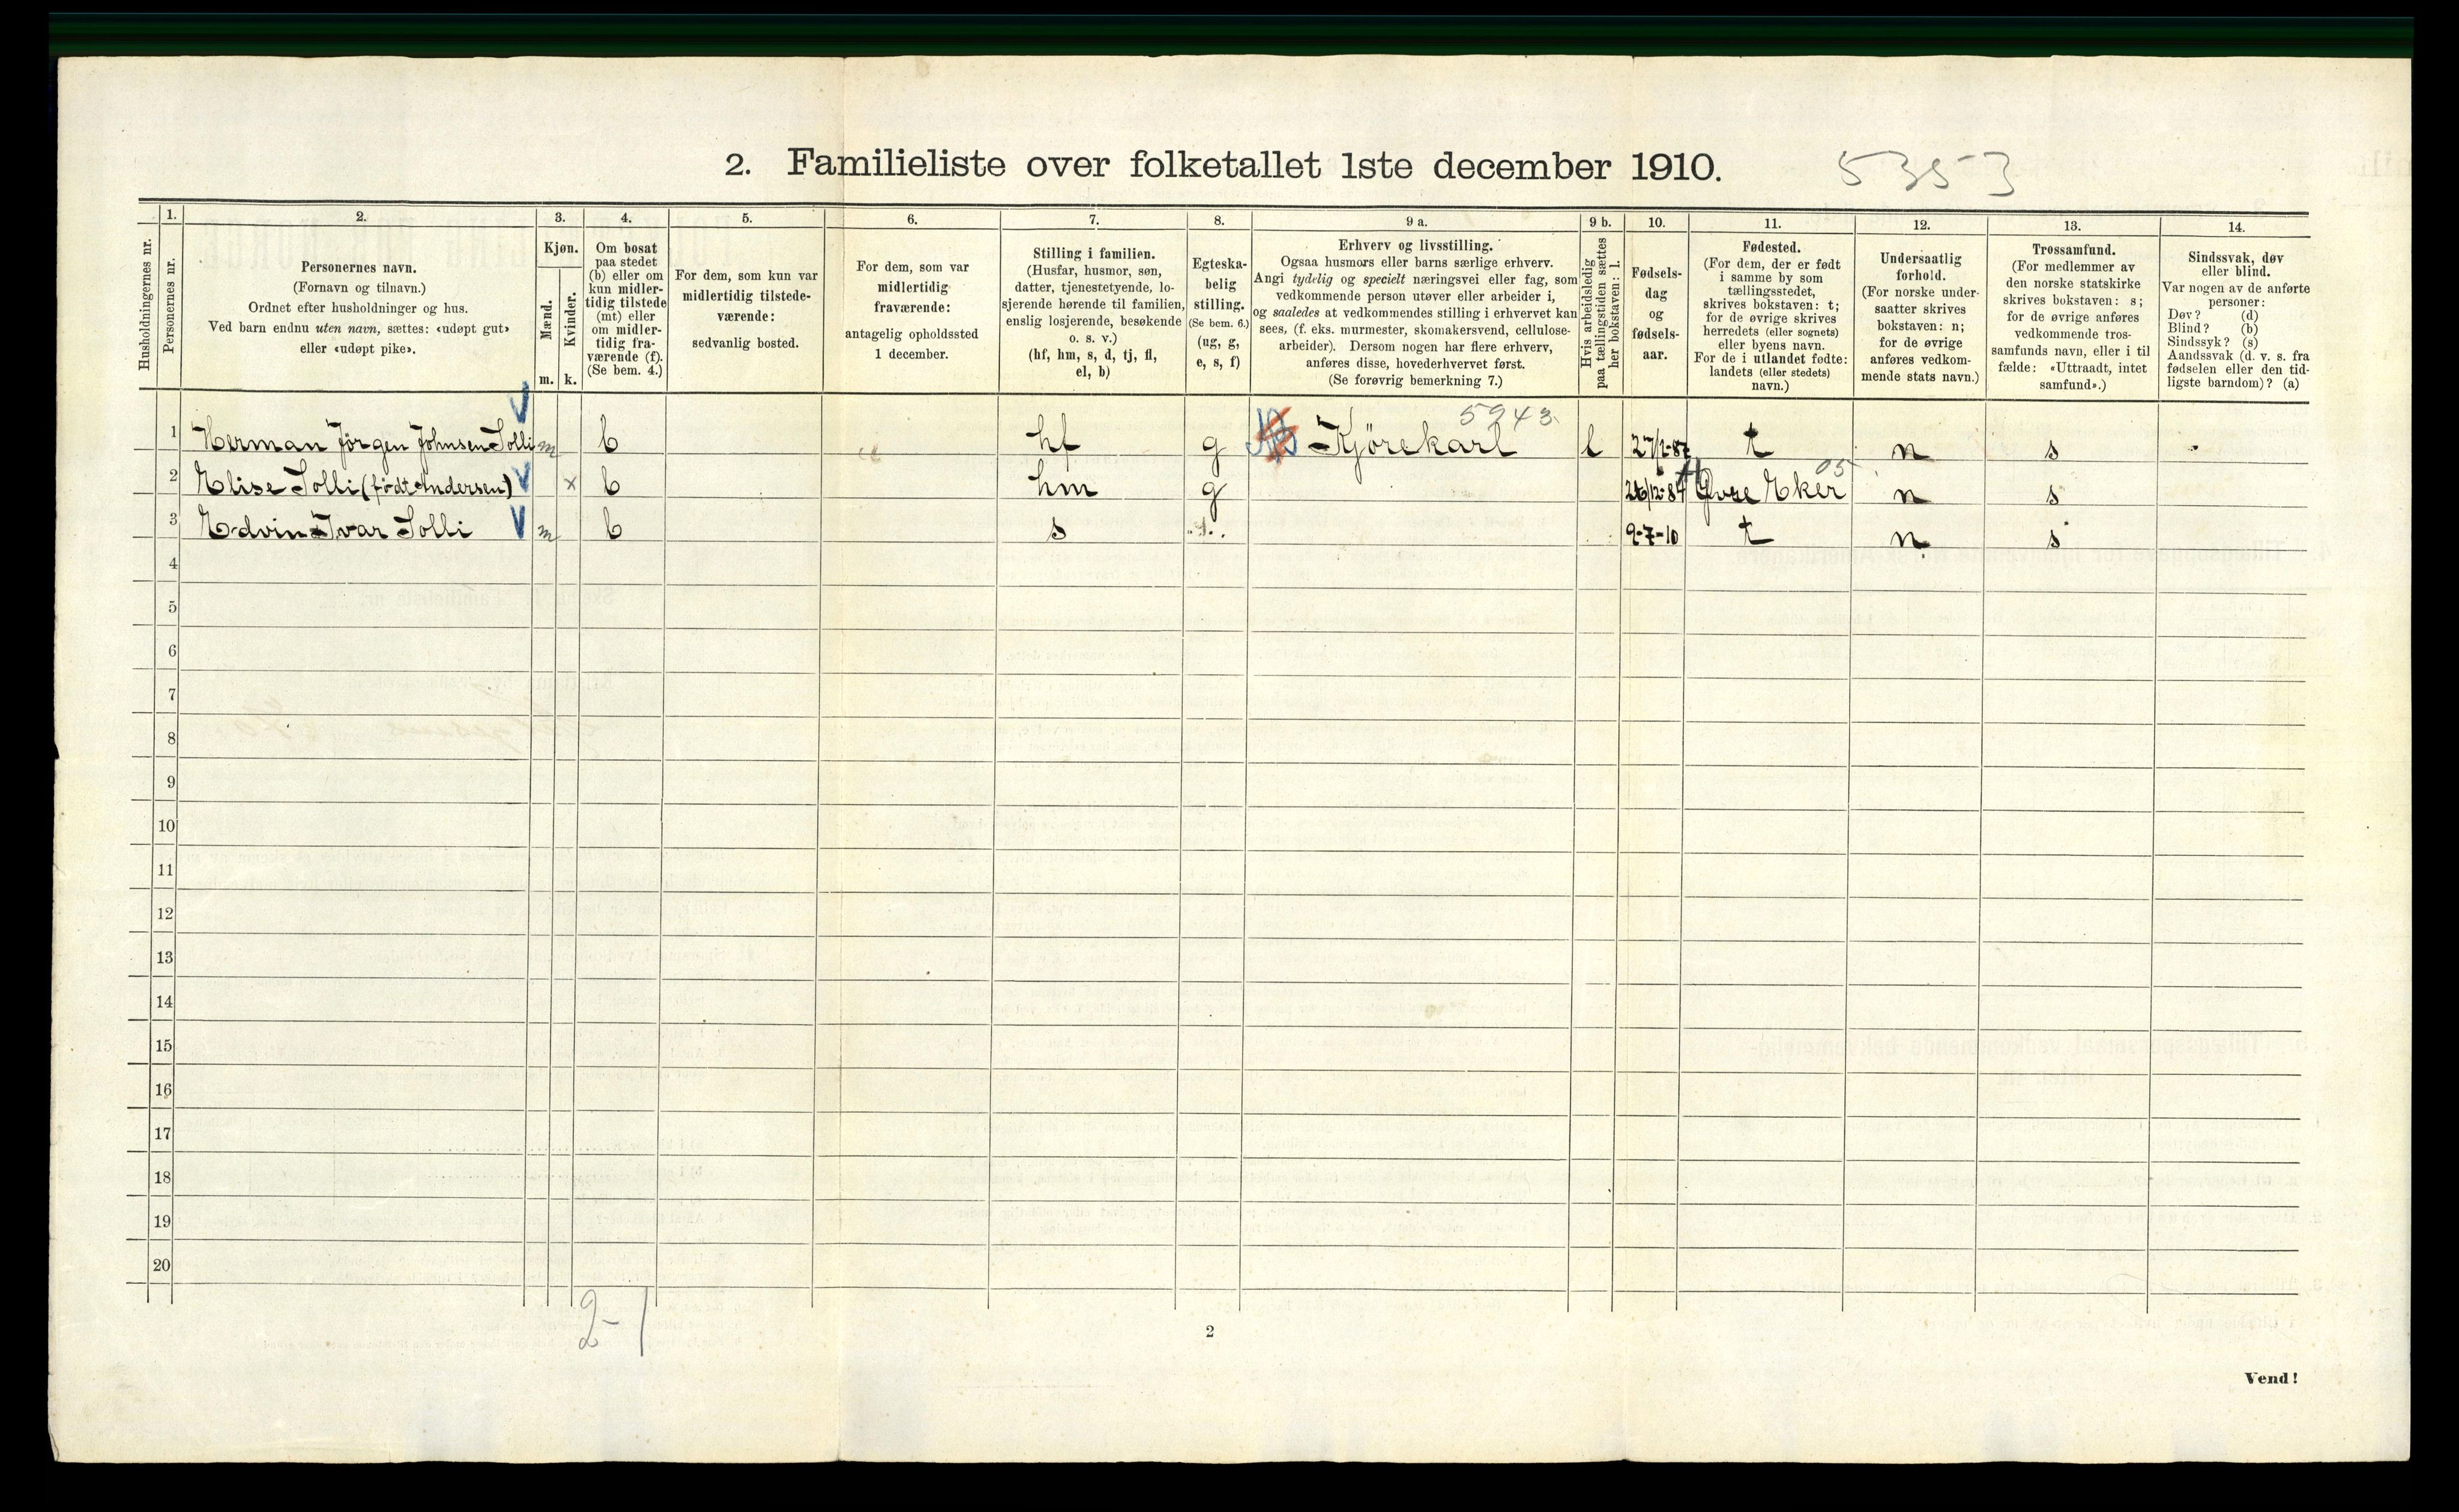 2. Familieliste over folketallet 1ste december 1910.
5353
Husholdningernes nr.
1.
Personernes nr.
2.
Personernes navn.
(Fornavn og tilnavn.)
Ordnet efter husholdninger og hus.
Ved barn endnu uten navn, sættes: «udøpt gut»
eller «udøpt pike».
3.
Kjøn.
Mænd.
m.
Kvinder.
k.
4.
Om bosat
paa stedet
(b) eller om
kun midler-
tidig tilstede
(mt) eller
om midler-
tidig fra-
værende (f).
(Se bem. 4.)
5.
For dem, som kun var
midlertidig tilstede-
værende:
sedvanlig bosted.
6.
For dem, som var
midlertidig
fraværende:
antagelig opholdssted
1 december.
7.
Stilling i familien.
(Husfar, husmor, søn,
datter, tjenestetyende, lo-
sjerende hørende til familien,
enslig losjerende, besøkende
o. s. v.)
(hf, hm, s, d, tj, fl,
el, b)
8.
Egteska-
belig
stilling.
(Se bem. 6.)
(ug, g,
e, s, f)
9 a.
Erhverv og livsstilling.
Ogsaa husmors eller barns særlige erhverv.
Angi tydelig og specielt næringsvei eller fag, som
vedkommende person utøver eller arbeider i,
og saaledes at vedkommendes stilling i erhvervet kan
sees, (f. eks. murmester, skomakersvend, cellulose-
arbeider). Dersom nogen har flere erhverv,
anføres disse, hovederhvervet først.
(Se forøvrig bemerkning 7.)
9 b.
Hvis arbeidsledig
paa tællingstiden sættes
her bokstaven: l.
10.
Fødsels-
dag
og
fødsels-
aar.
11.
Fødested.
(For dem, der er født
i samme by som
tællingsstedet,
skrives bokstaven: t;
for de øvrige skrives
herredets (eller sognets)
eller byens navn.
For de i utlandet fødte:
landets (eller stedets)
navn.)
12.
Undersaatlig
forhold.
(For norske under-
saatter skrives
bokstaven: n;
for de øvrige
anføres vedkom-
mende stats navn.)
13.
Trossamfund.
(For medlemmer av
den norske statskirke
skrives bokstaven: s;
for de øvrige anføres
vedkommende tros-
samfunds navn, eller i til
fælde: «Uttraadt, intet
samfund».)
14.
Sindssvak, døv
eller blind.
Var nogen av de anførte
personer:
Døv? (d)
Blind? (b)
Sindssyk? (s)
Aandssvak (d. v. s. fra
fødselen eller den tid-
ligste barndom)? (a)
5943.
1 Herman Jörgen Johnsen Solli m b hf g Kjörekarl l t n s
05
2 Elise Solli (født Andersen) x b hm g 26/12-84 Øvre Eker n s
3 Edvin Ivar Solli m b s 9-7-10 t n s
4
5
6
7
8
9
10
11
12
13
14
15
16
17
18
19
20
2-1
2
Vend!